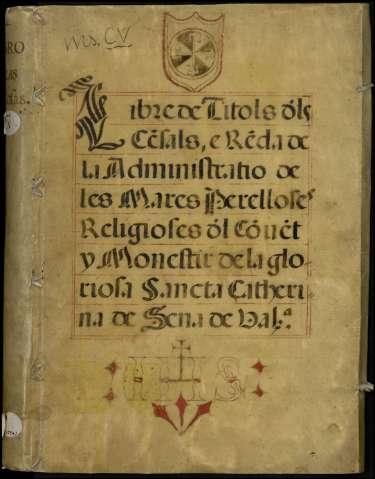 Ms. CV
Libre de Titols dls
Cēsals, e Rēda de
la Administratio de
les Mares Perelloses
Religioses dl Cōuēt
y Monestir de la glo-
riosa Sancta Catheri-
na de Sena de Val.ª
IHS